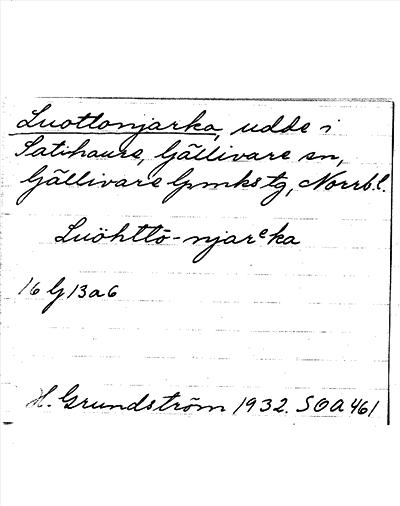 Luottonjarka, udde i
Satihaure, Gällivare sn,
Gällivare lpmkstg, Norrb.l.
Luöhttō-njarᵉka
16 G 13 a 6
H. Grundström 1932. SOA 461